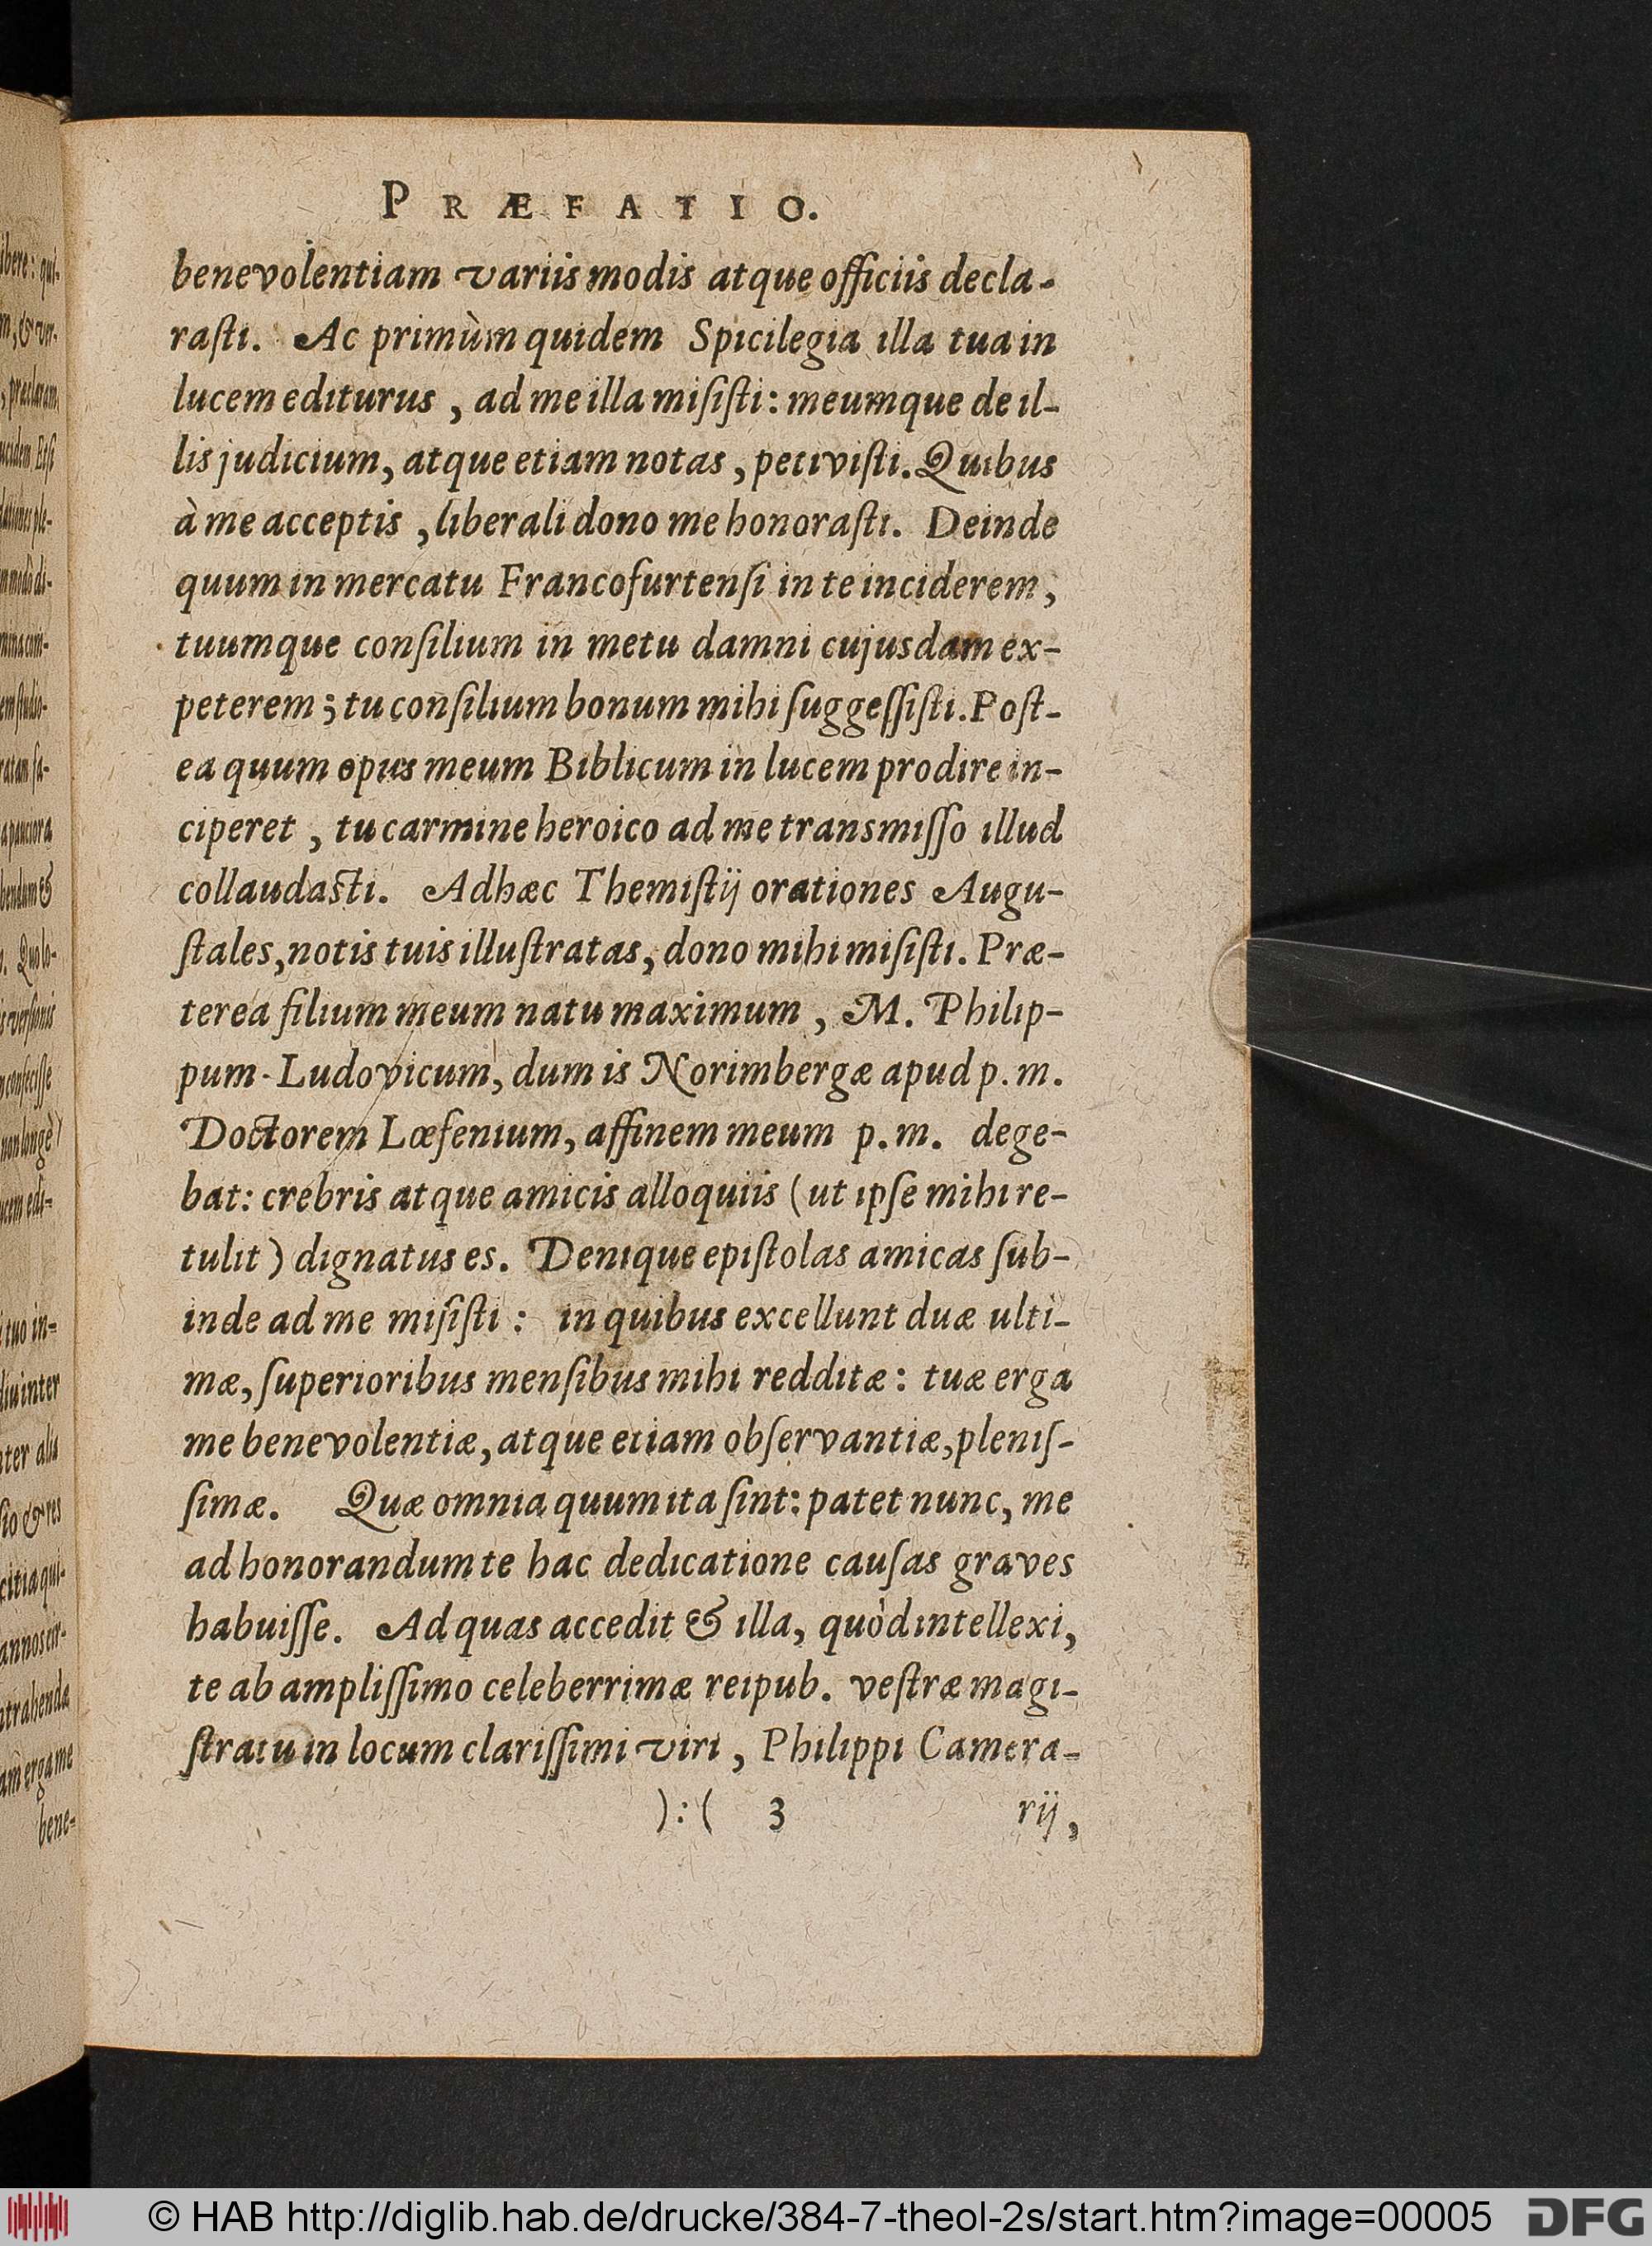 PRÆFATIO.
benevolentiam variis modis atque officiis decla-
raſti. Ac primùm quidem Spicilegia illa tua in
lucem editurus, ad me illa miſiſti: meumque de il-
lis judicium, atque etiam notas, petiviſti. Quibus
à me acceptis, liberali dono me honoraſti. Deinde
quum in mercatu Francofurtenſi in te inciderem,
tuumque conſilium in metu damni cujusdam ex-
peterem; tu conſilium bonum mihi ſuggeſſiſti. Poſt-
ea quum opus meum Biblicum in lucem prodire in-
ciperet, tu carmine heroico ad me transmiſſo illud
collaudaſti. Adhæc Themiſtij orationes Augu-
ſtales, notis tuis illuſtratas, dono mihi miſiſti. Præ-
terea filium meum natu maximum, M. Philip-
pum-Ludovicum, dum is Norimbergæ apud p. m.
Doctorem Lœfenium, affinem meum p. m. dege-
bat: crebris atque amicis alloquiis (ut ipſe mihi re-
tulit) dignatus es. Denique epiſtolas amicas ſub-
inde ad me miſiſti: in quibus excellunt duæ ulti-
mæ, ſuperioribus menſibus mihi redditæ: tuæ erga
me benevolentiæ, atque etiam obſervantiæ, pleniſ-
ſimæ. Quæ omnia quum ita ſint: patet nunc, me
ad honorandum te hac dedicatione cauſas graves
habuiſſe. Ad quas accedit & illa, quòd intellexi,
te ab ampliſſimo celeberrimæ reipub. veſtræ magi-
ſtratu in locum clariſſimi viri, Philippi Camera-
):( 3 rij,
bene-
© HAB http://diglib.hab.de/drucke/384-7-theol-2s/start.htm?image=00005
DFG